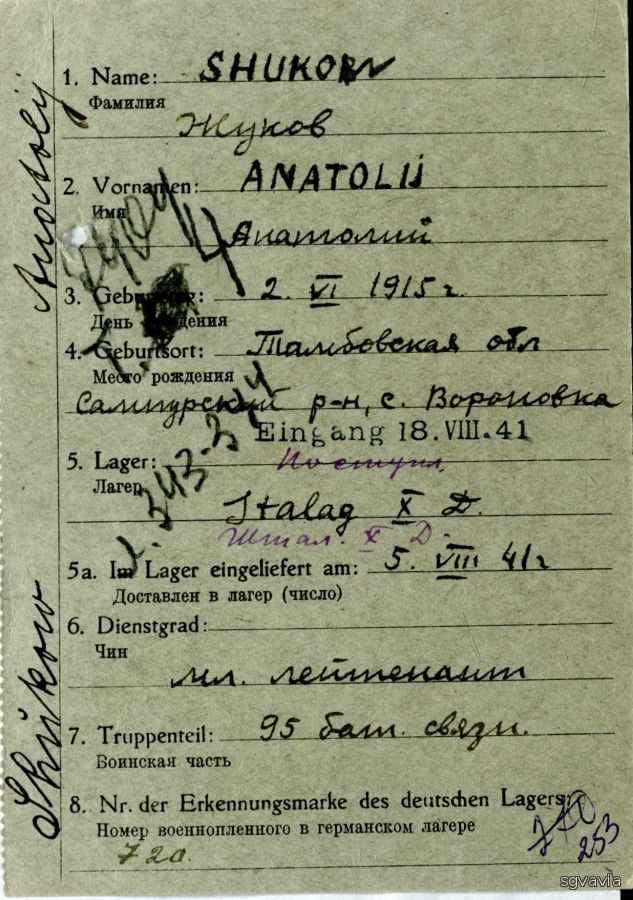 1. Name: SHUKOW
Фамилия
Жуков
2. Vornamen: ANATOLIJ
Имя
Анатолий
3. Geburtstag: 2. VI 1915 г.
День рождения
4. Geburtsort: Тамбовская обл
Место рождения
Сампурский р-н, с. Вороновка
Eingang 18.VIII.41
5. Lager: Поступл.
Лагер
Stalag X D.
Штал. X D.
5a. Im Lager eingeliefert am: 5. VIII 41 г
Доставлен в лагер (число)
6. Dienstgrad:
Чин
мл. лейтенант
7. Truppenteil: 95 бат. связи.
Воинская часть
8. Nr. der Erkennungsmarke des deutschen Lagers:
Номер военнопленного в германском лагере
720
253
Shukow Anatolij
sgvavia